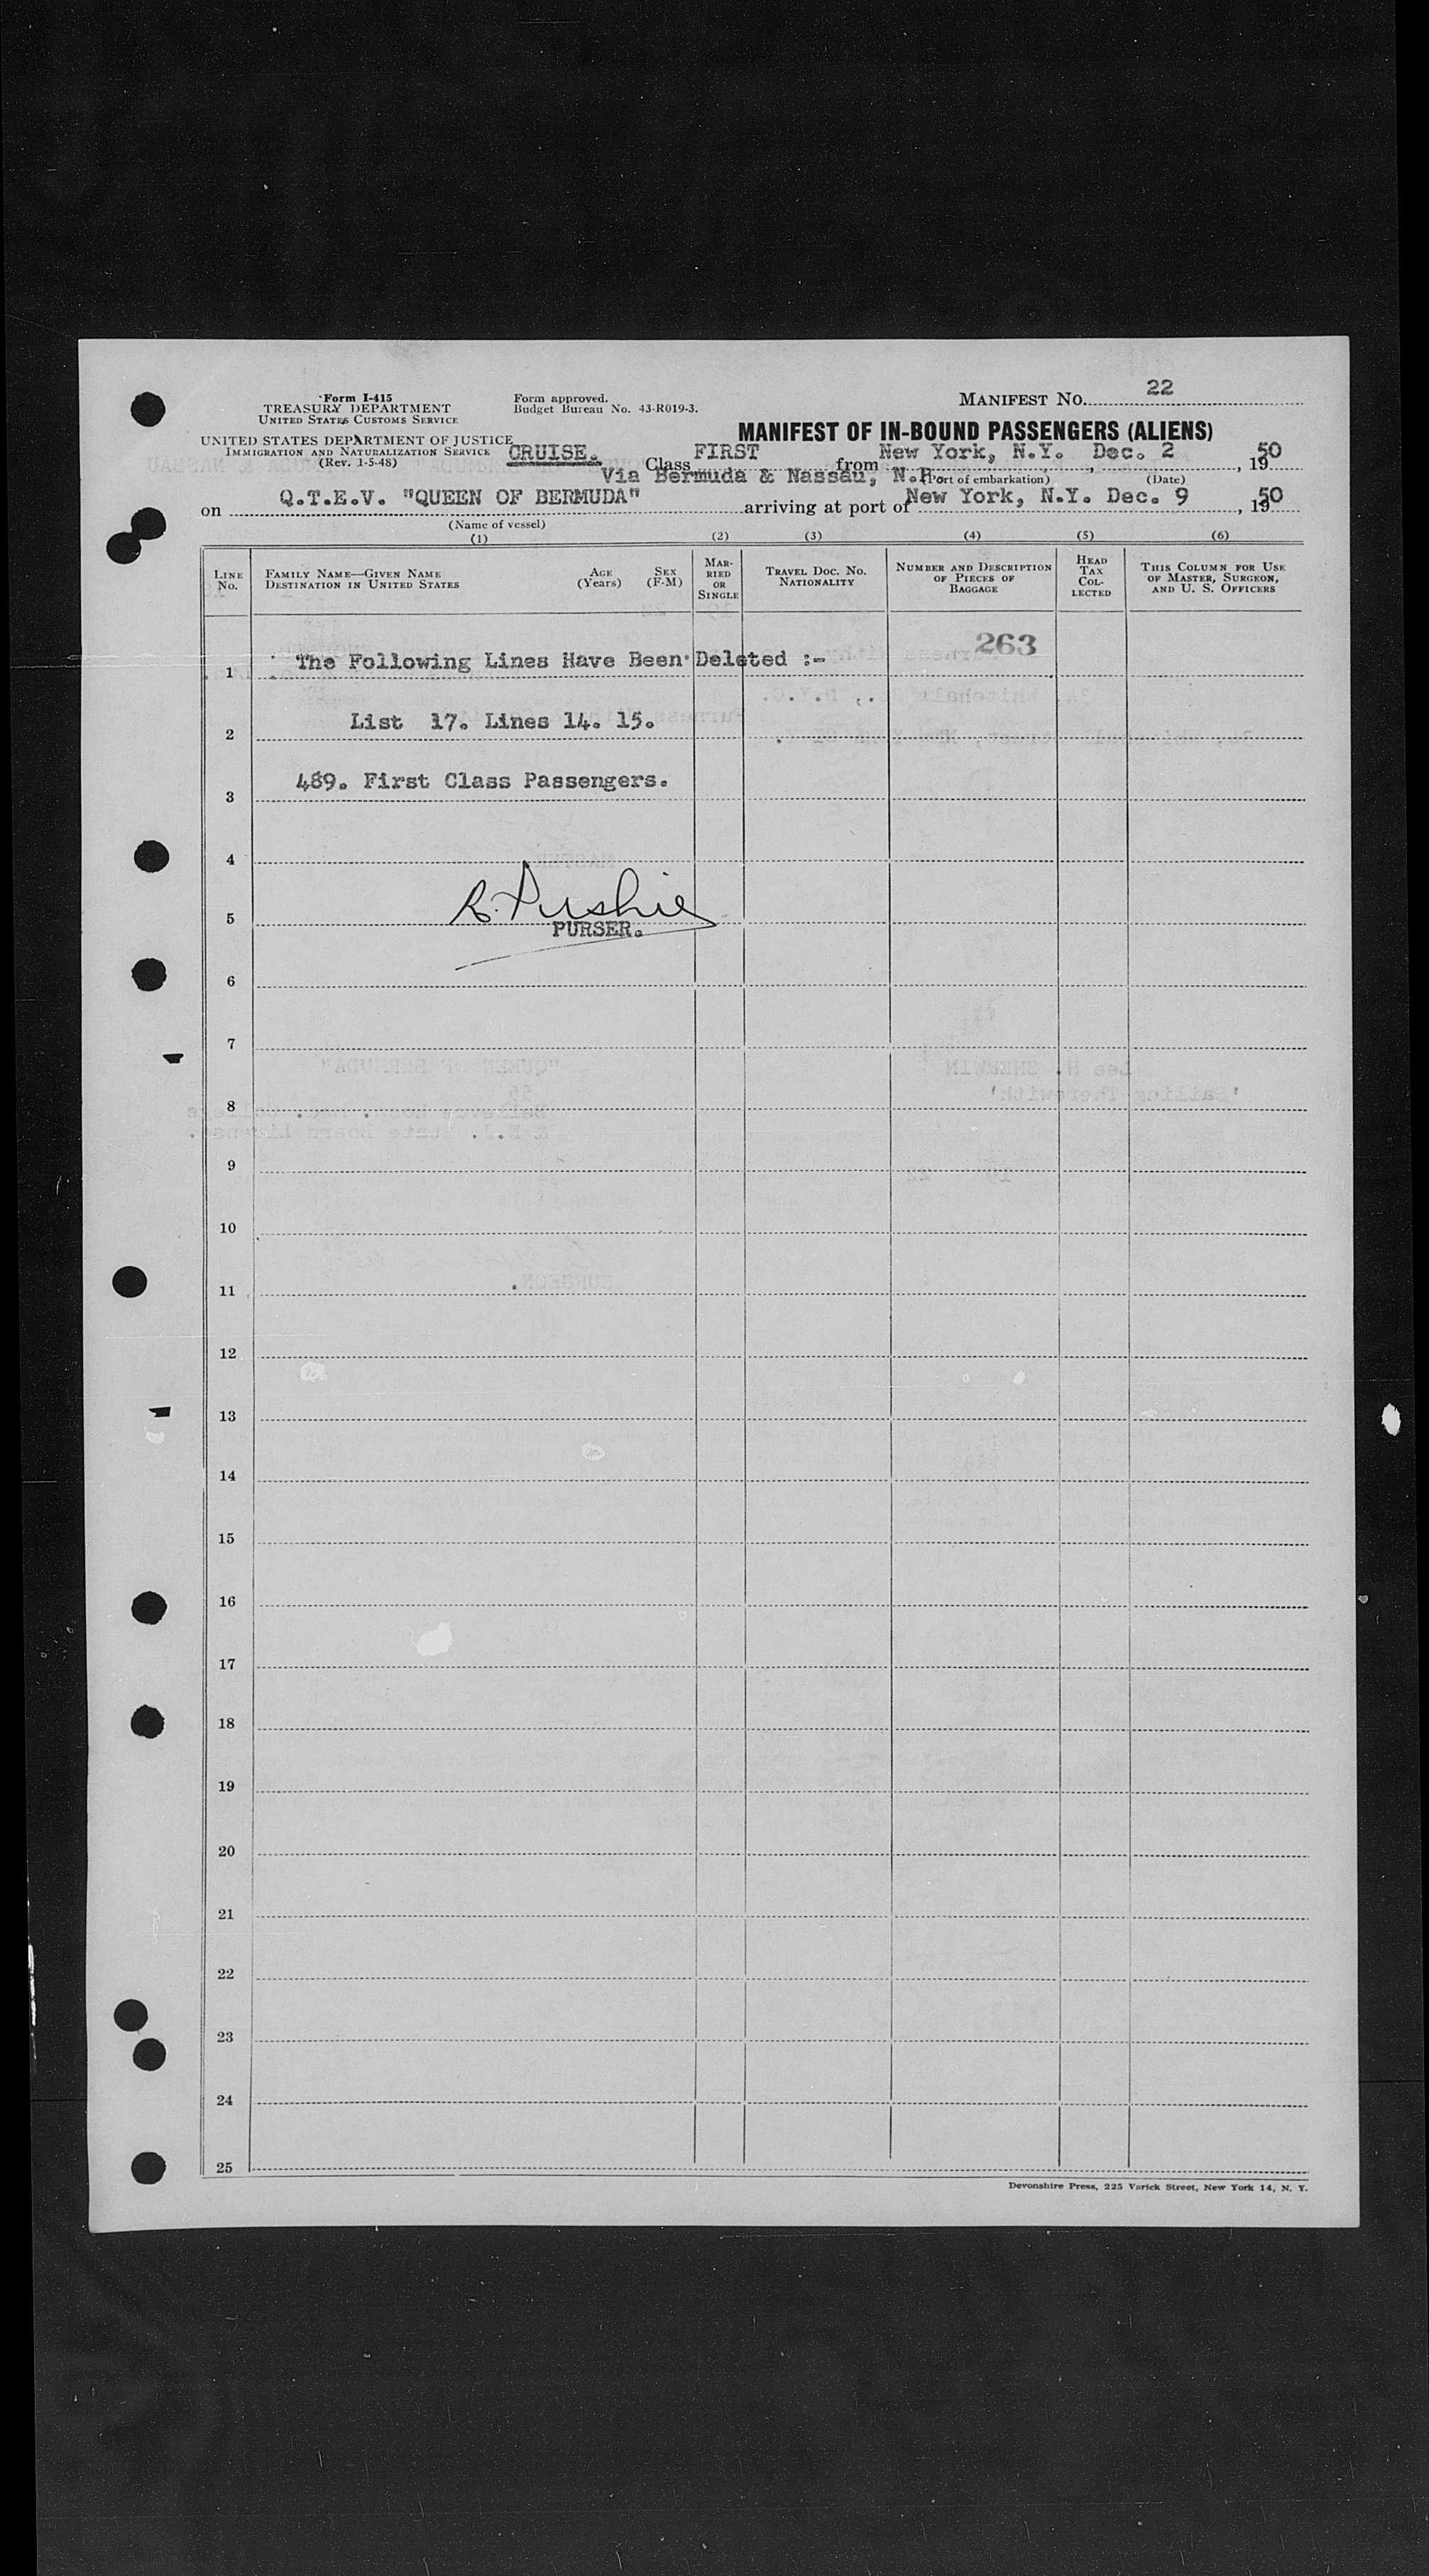 Form I-415
TREASURY DEPARTMENT
UNITED STATES CUSTOMS SERVICE
UNITED STATES DEPARTMENT OF JUSTICE
IMMIGRATION AND NATURALIZATION SERVICE
(Rev. 1-5-48)
Form approved.
Budget Bureau No. 43-R019-3.
MANIFEST NO. 22
MANIFEST OF IN-BOUND PASSENGERS (ALIENS)
CRUISE. FIRST Class from New York, N.Y. Dec. 2, 1950
Via Bermuda & Nassau, N.P. (Port of embarkation) (Date)
on Q.T.E.V. "QUEEN OF BERMUDA" arriving at port of New York, N.Y. Dec. 9, 1950
(Name of vessel)
(1) (2) (3) (4) (5) (6)
LINE NO.
FAMILY NAME—GIVEN NAME
DESTINATION IN UNITED STATES
AGE (Years)
SEX (F-M)
MARRIED OR SINGLE
TRAVEL DOC. NO.
NATIONALITY
NUMBER AND DESCRIPTION
OF PIECES OF
BAGGAGE
HEAD TAX COLLECTED
THIS COLUMN FOR USE
OF MASTER, SURGEON,
AND U. S. OFFICERS
263
1 The Following Lines Have Been Deleted :-
2 List 17. Lines 14. 15.
3 489. First Class Passengers.
4
5
PURSER.
6
7
8
9
10
11
12
13
14
15
16
17
18
19
20
21
22
23
24
25
Devonshire Press, 225 Varick Street, New York 14, N. Y.